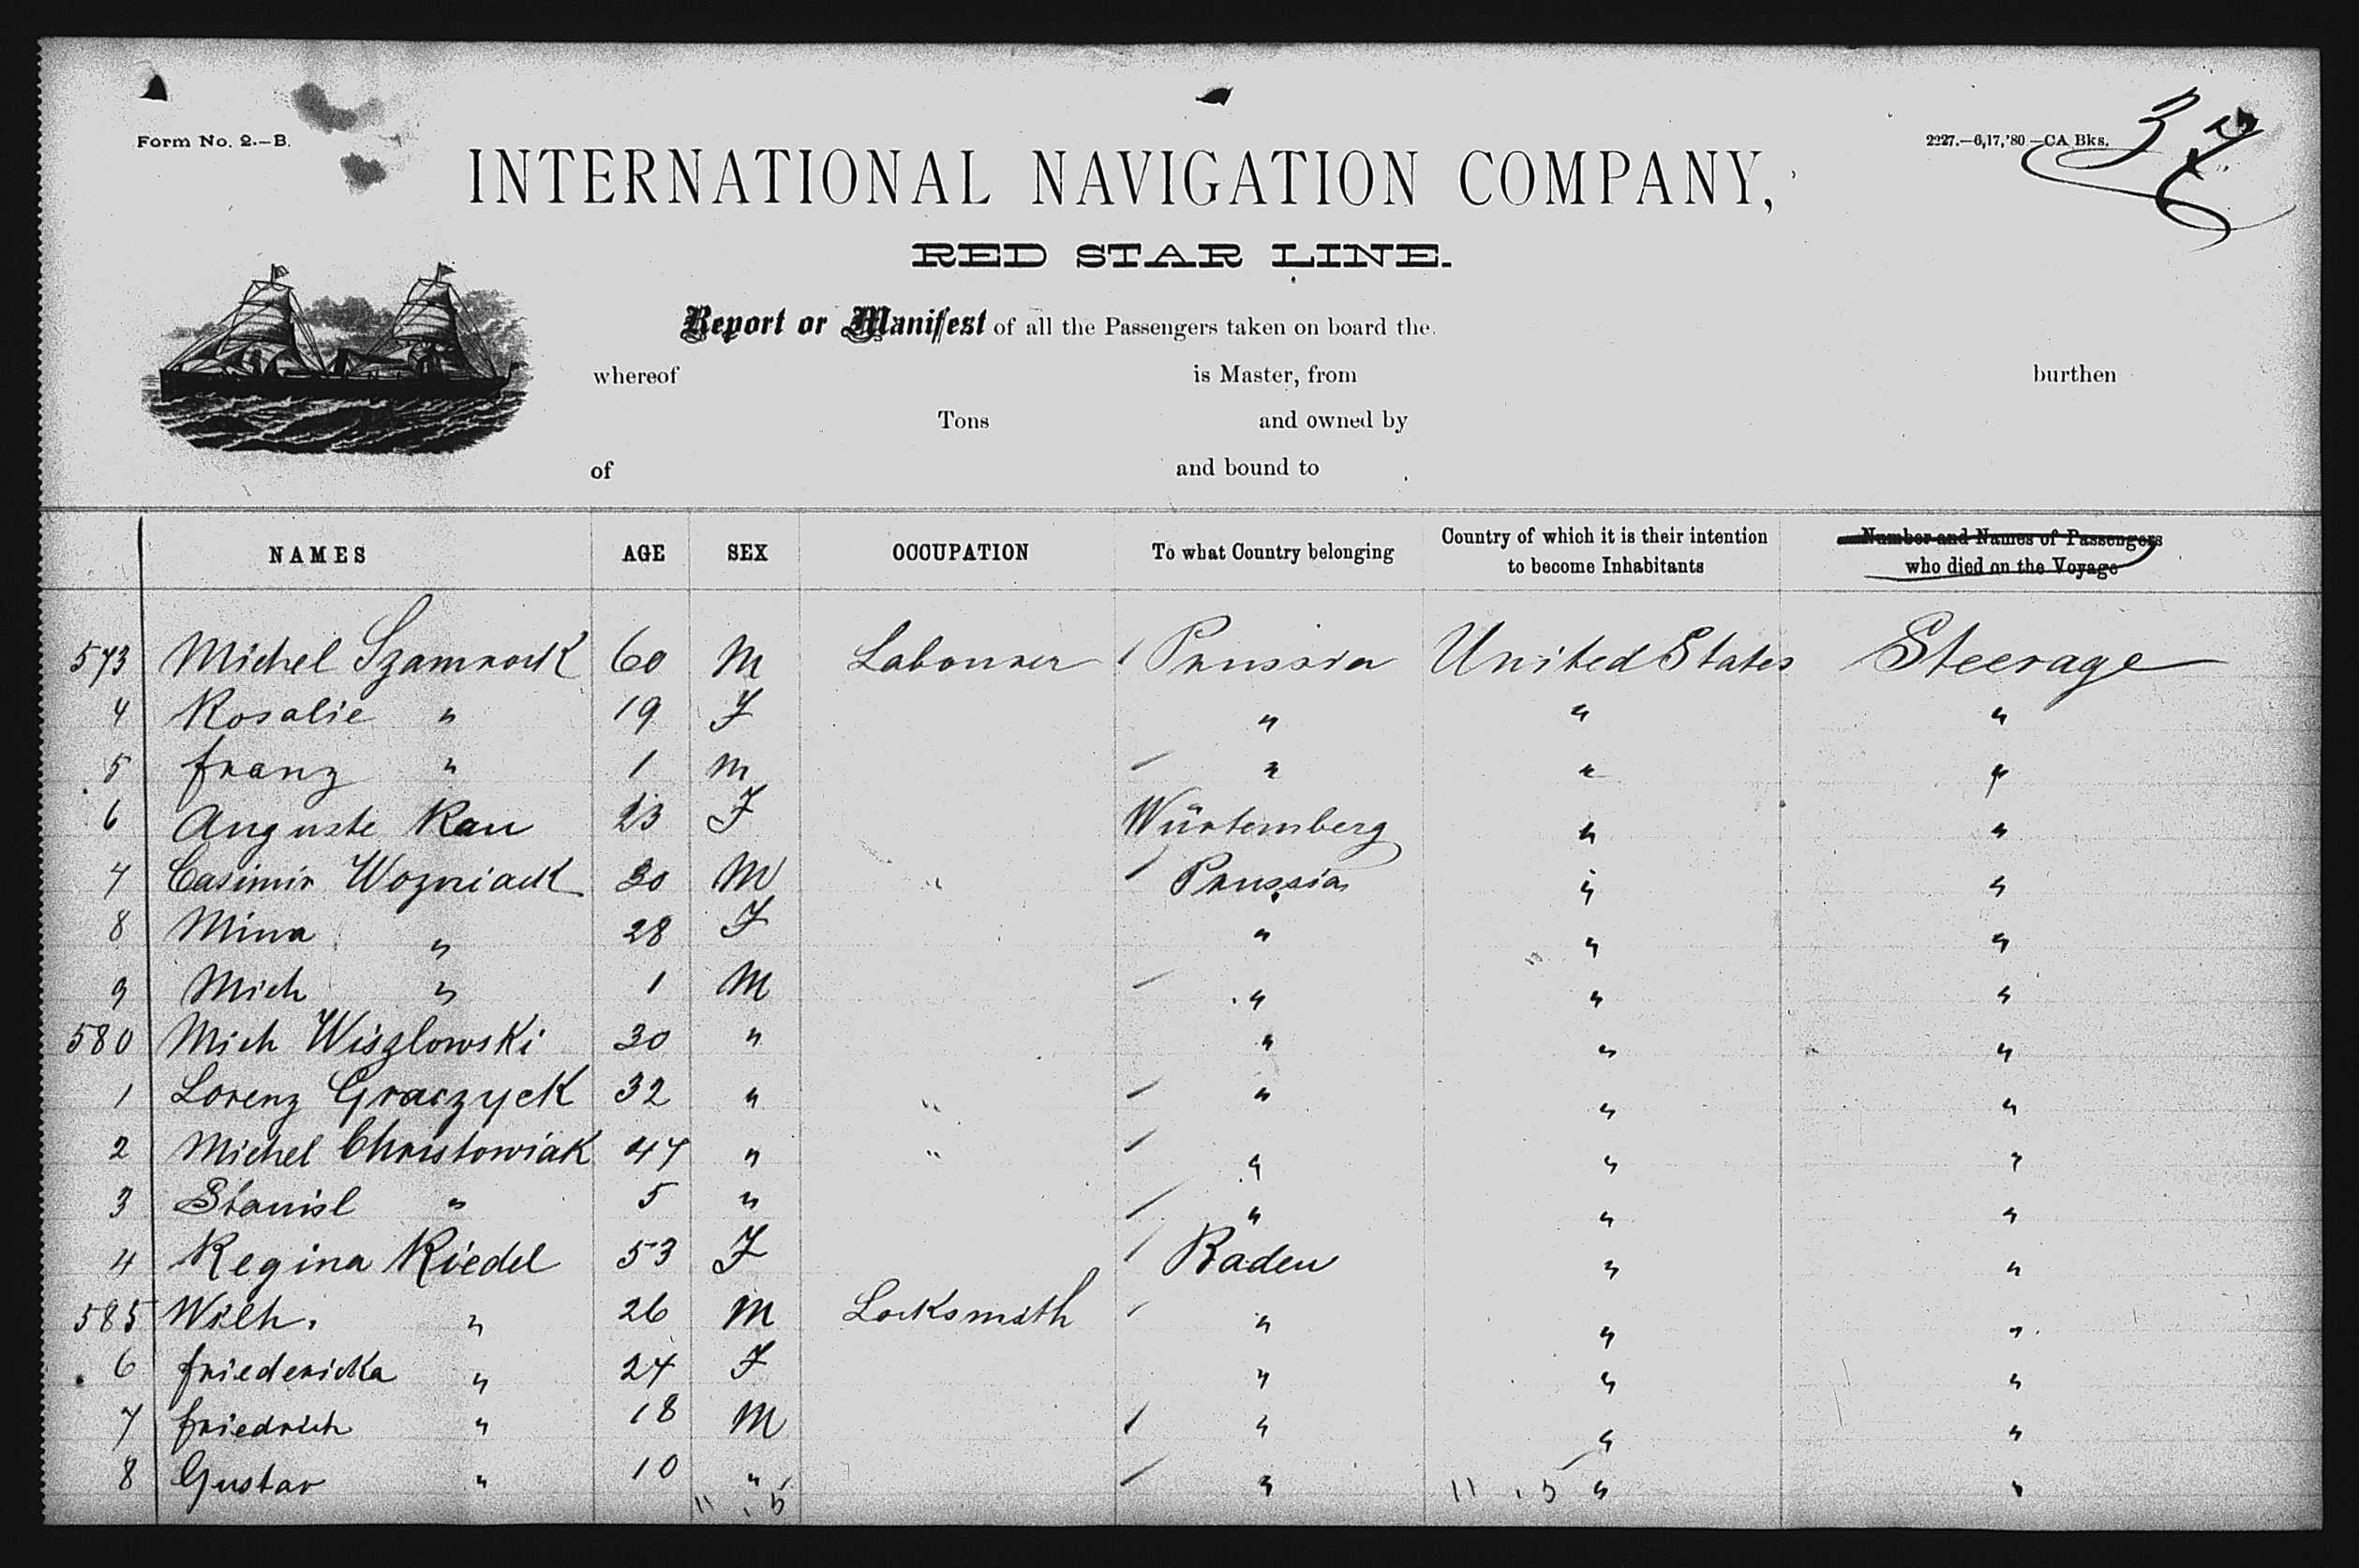 Form No. 2.—B.
2227.—6,17,'80—CA Bks.
37
INTERNATIONAL NAVIGATION COMPANY,
RED STAR LINE.
Report or Manifest of all the Passengers taken on board the
whereof is Master, from burthen
Tons and owned by
of and bound to
NAMES AGE SEX OCCUPATION To what Country belonging Country of which it is their intention to become Inhabitants Number and Names of Passengers who died on the Voyage
573 Michel Szamrock 60 M Labourer / Prussia United States Steerage
4 Rosalie " 19 F " " "
5 franz " 1 m / " " "
6 Auguste Rau 23 F Würtemberg " "
7 Casimir Wozniack 30 M " / Prussia " "
8 Mina " 28 F " " "
9 Mich " 1 M / " " "
580 Mich Wiszlowski 30 " " " "
1 Lorenz Graczyck 32 " " / " " "
2 Michel Christowiak 47 " " / " " "
3 Stanisl " 5 " / " " "
4 Regina Riedel 53 F / Baden " "
585 Wilh. " 26 M Locksmith / " " "
6 friedericka " 24 F " " "
7 friedrich " 18 M / " " "
8 Gustav " 10 " / " " "
11 . 5 11 . 5